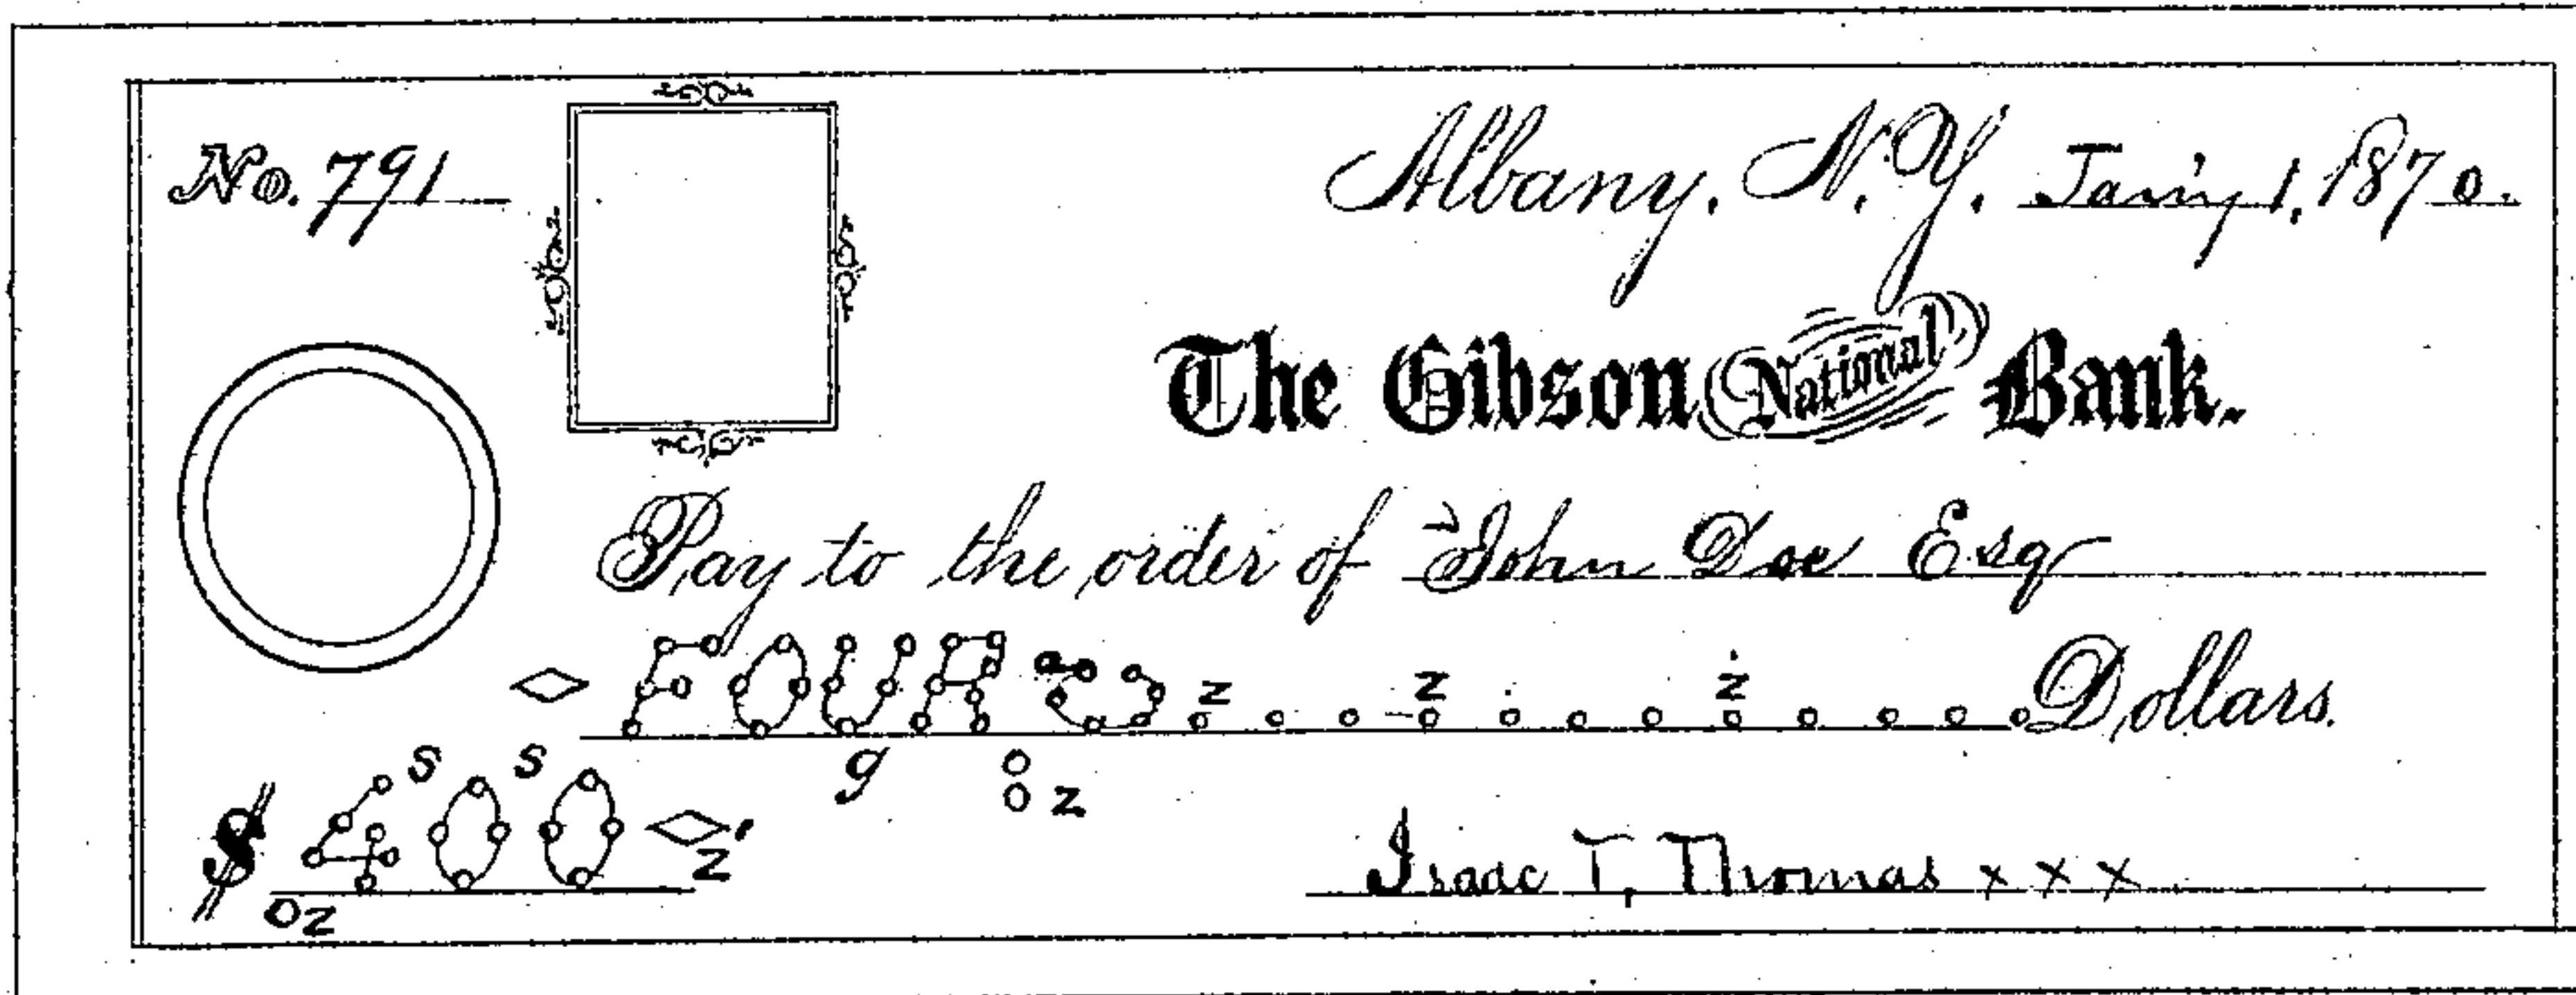 No. 791 Albany, N.Y. Jan'y 1, 1870.
The Gibson National Bank.
Pay to the order of John Doe Esq
FOUR z z z Dollars.
s s g z
$ 400 z'
Isaac T, Thomas x x x
oz